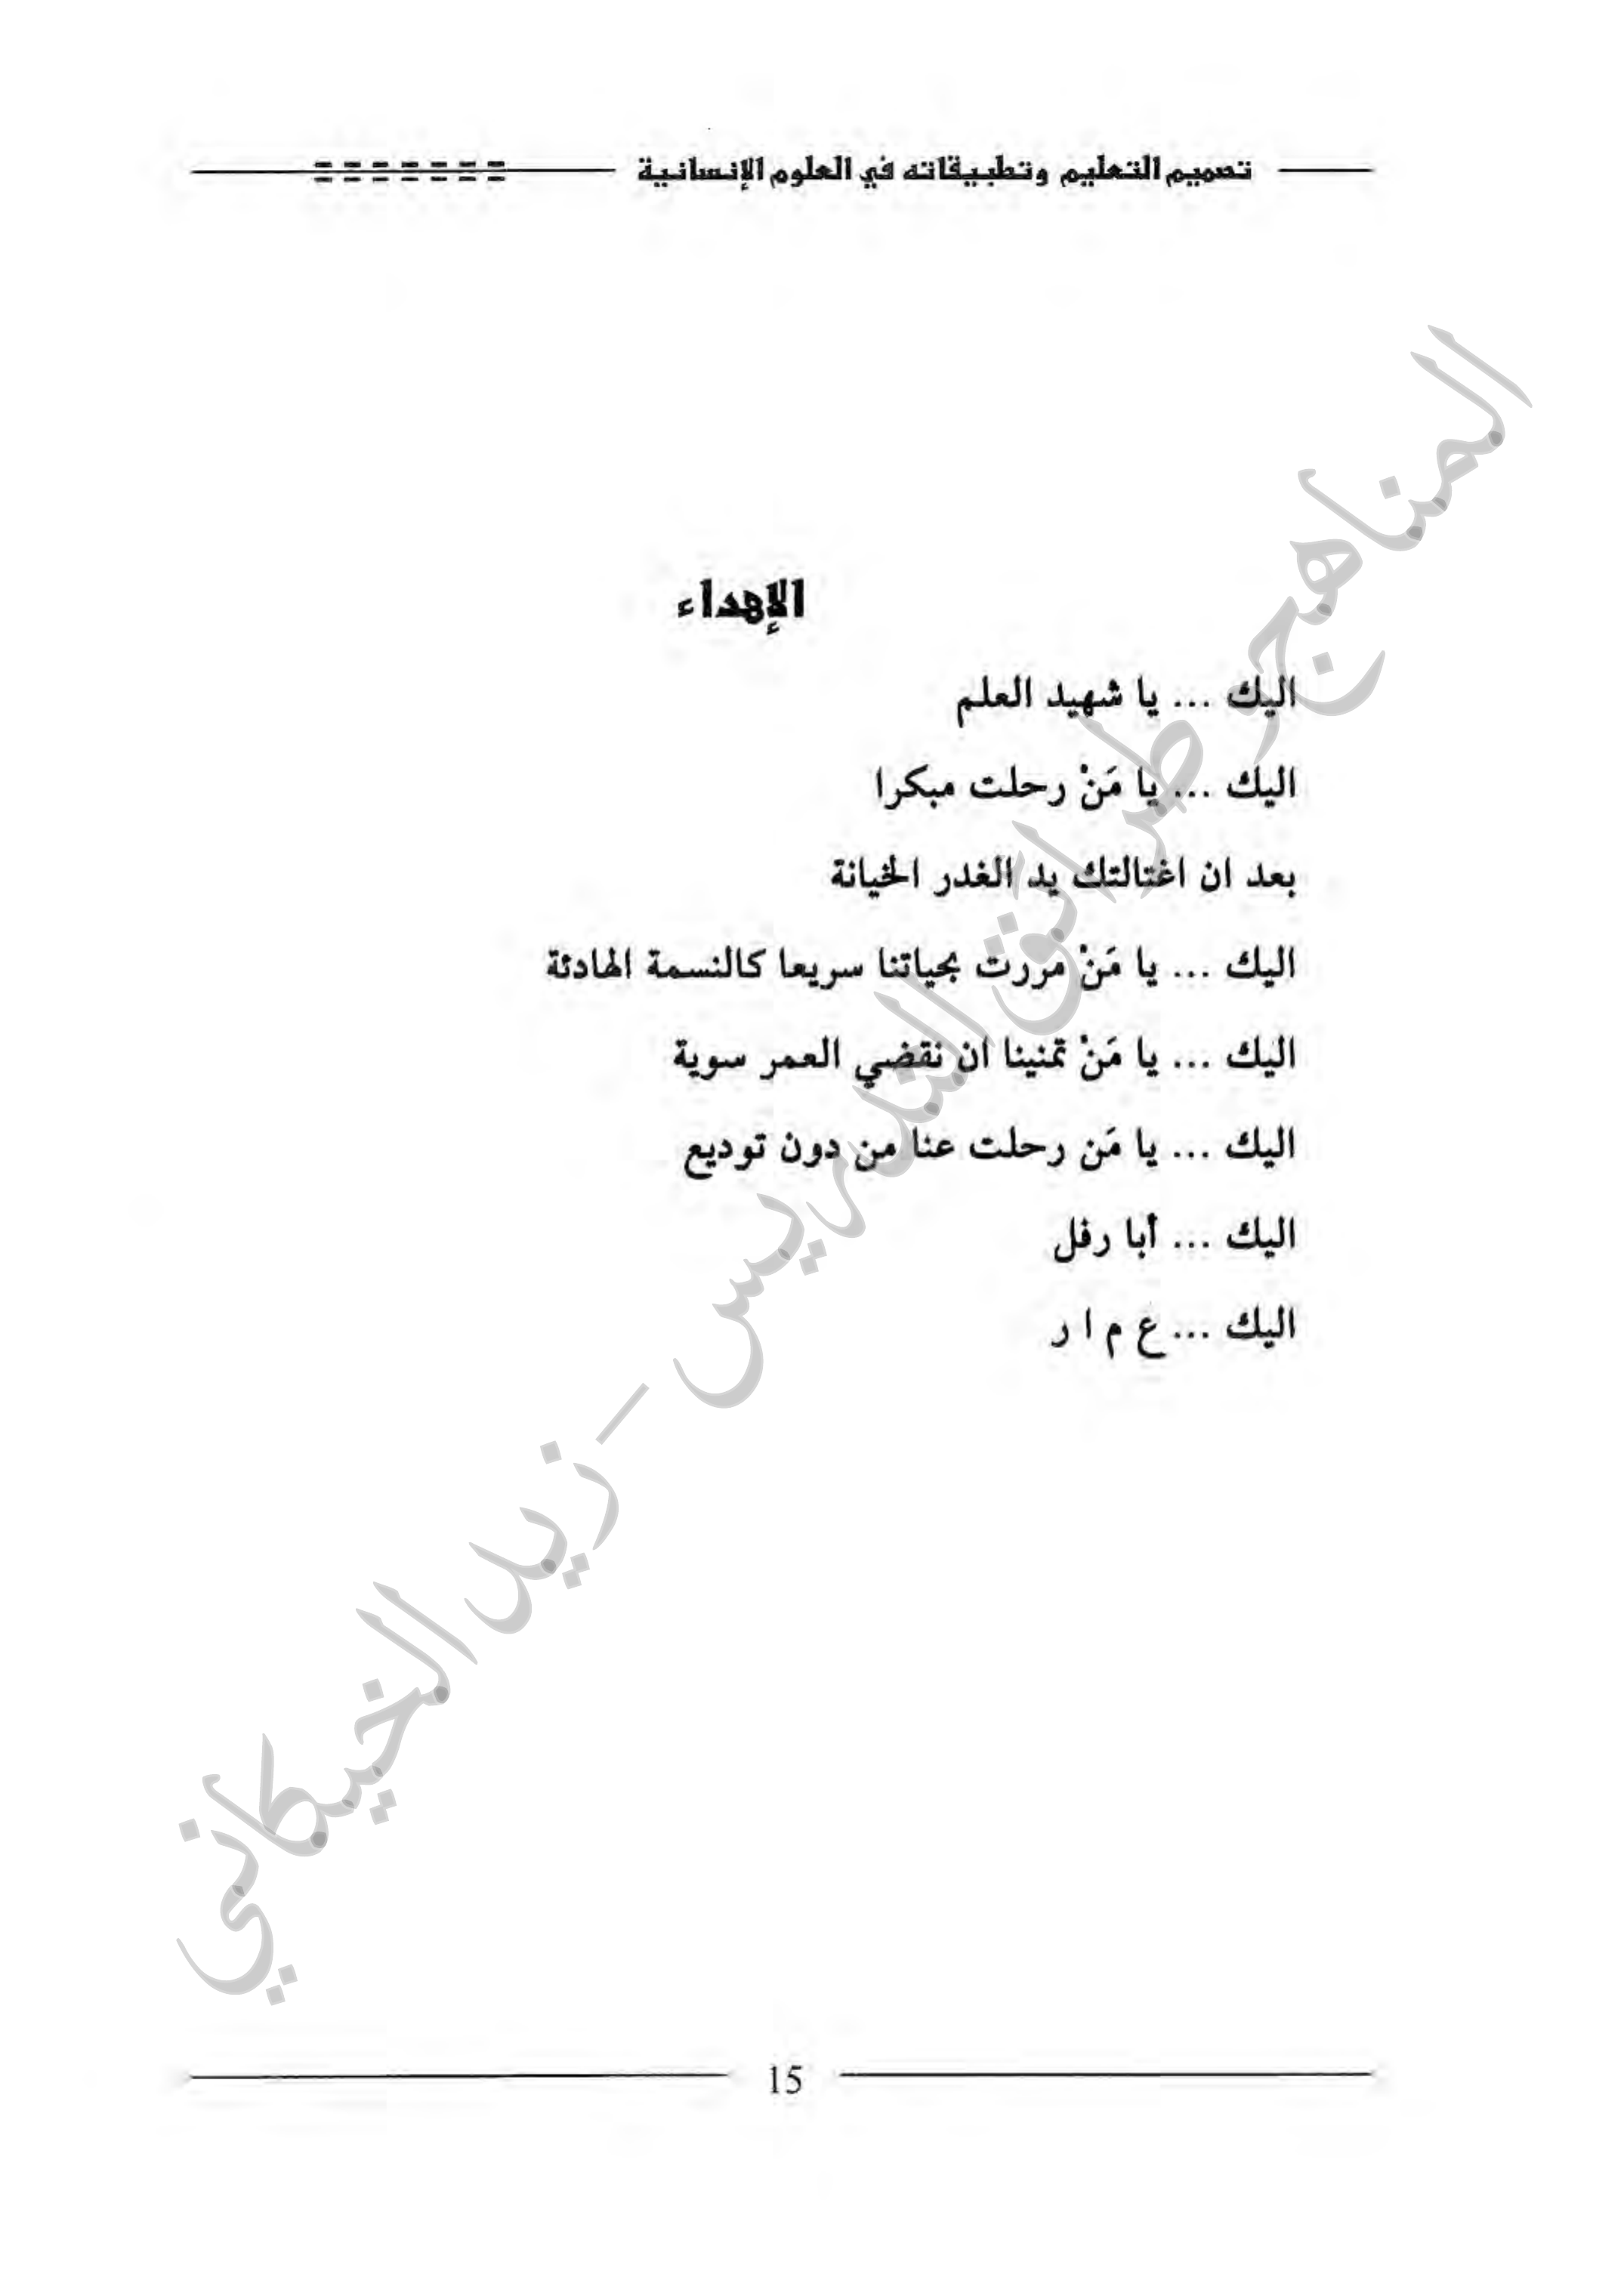 تصميم التعليم وتطبيقاته في العلوم الإنسانية
الإهداء
اليك ... يا شهيد العلم
اليك ... يا مَنْ رحلت مبكرا
بعد ان اغتالتك يد الغدر الخيانة
اليك ... يا مَنْ مررت بحياتنا سريعا كالنسمة الهادئة
اليك ... يا مَنْ تمنينا ان نقضي العمر سوية
اليك ... يا مَن رحلت عنا من دون توديع
اليك ... أبا رفل
اليك ... ع م ا ر
المناهج وطرائق التدريس - زيد الخيكاني
15